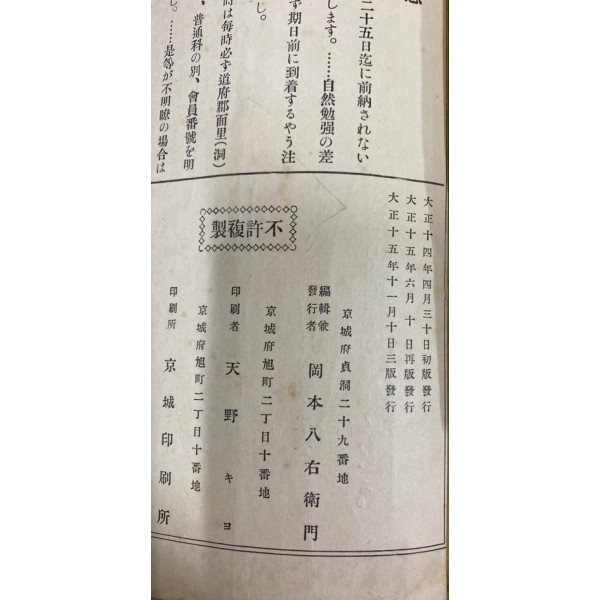 二十五日迄に前納されない
します。……自然勉强の差
ず期日前に到着するやう注
し。
時は每時必ず道府郡面里(洞)
、普通科の別、會員番號を明
し。……是等が不明瞭の場合は
大正十四年四月三十日初版發行
大正十五年六月十日再版發行
大正十五年十一月十日三版發行
不許複製
京城府貞洞二十九番地
編輯兼
發行者
岡本八右衛門
京城府旭町二丁目十番地
印刷者 天野キヨ
京城府旭町二丁目十番地
印刷所 京城印刷所